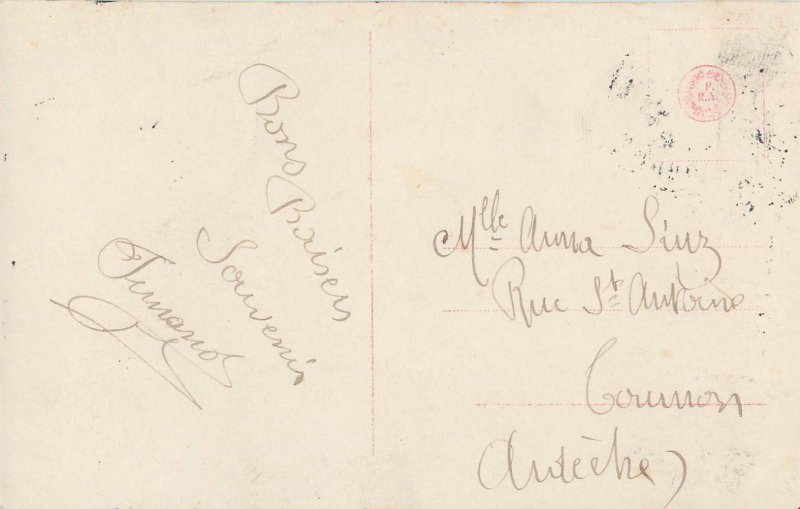 Bons Baisers
Souvenir
Fernand
P.
R.A.
Mlle Anna
Rue St Antoine
Tournon
Ardèche